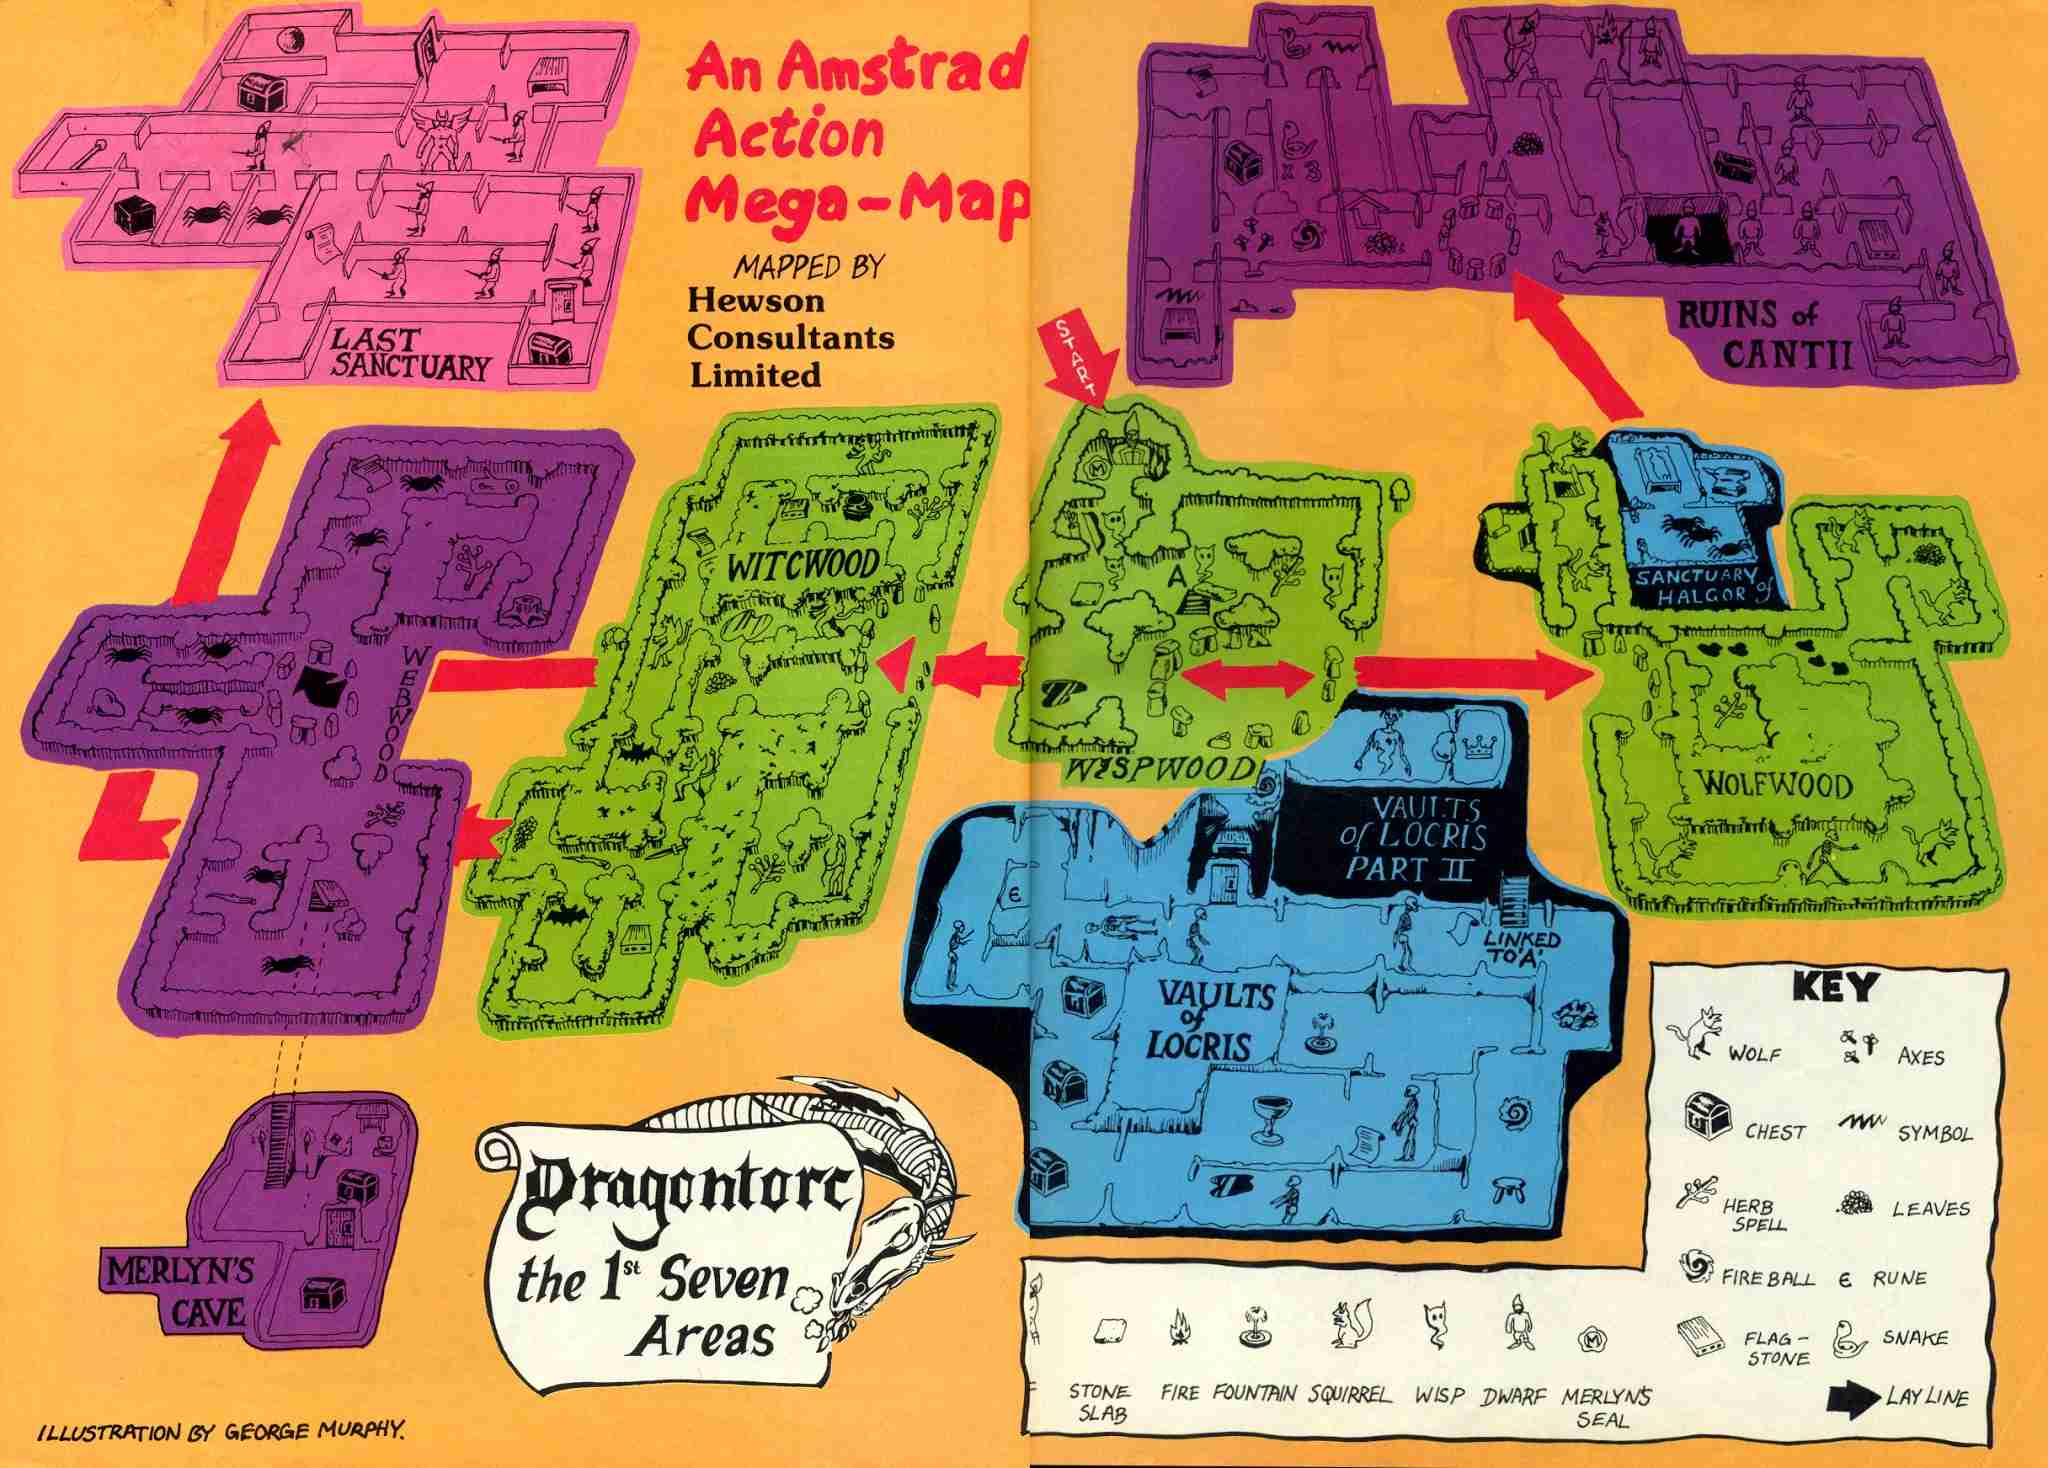 An Amstrad
Action
Mega-Map
MAPPED BY
Hewson
Consultants
Limited
LAST
SANCTUARY
START
RUINS of
CANTII
M
WITCWOOD
A
SANCTUARY
of
HALGOR
WEBWOOD
WISPWOOD
WOLFWOOD
VAULTS
of LOCRIS
PART II
x 3
E
LINKED
TO 'A'
VAULTS
of
LOCRIS
MERLYN'S
CAVE
Dragontorc
the 1st Seven
Areas
KEY
WOLF
AXES
CHEST
SYMBOL
HERB
SPELL
LEAVES
FIREBALL
E RUNE
FLAG-
STONE
SNAKE
LAY LINE
M
STONE
SLAB
FIRE
FOUNTAIN
SQUIRREL
WISP
DWARF
MERLYN'S
SEAL
ILLUSTRATION BY GEORGE MURPHY.